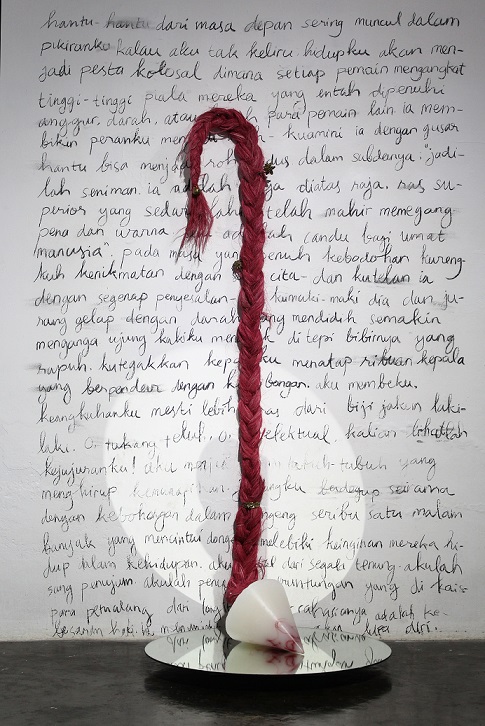 hantu-hantu dari masa depan sering muncul dalam
pikiranku. kalau aku tak keliru. hidupku akan men-
jadi pesta kolosal dimana setiap pemain mengangkat
tinggi-tinggi piala mereka yang entah dipenuhi
anggur. darah. atau para pemain lain ia mem-
bikin peranku men kuamini ia dengan gusar
hantu bisa menjadi roh dus dalam sabdanya. "jadi-
lah seniman. ia adalah raja diatas raja. ras su-
perior yang sedari telah mahir memegang
pena dan warna adalah candu bagi umat
manusia". pada masa yang penuh kebodohan kureng-
kuh kenikmatan dengan cita- dan
dengan segenap penyesalan- kumaki-maki dia dan ju-
rang gelap dengan darah yang mendidih semakin
menganga ujung kakiku men di tepi bibirnya yang
rapuh. kutegakkan kepalaku menatap ribuan kepala
yang berpendar dengan bongan. aku membeku.
keangkuhanku mesti lebih dari biji jakun laki-
laki. o. tukang o. kalian lihatlah
kejujuranku! aku tubuh-tubuh yang
menghirup berdegup seirama
dengan kebohongan dalam dongeng seribu satu malam
banyak yang mencintai dongeng melebihi keinginan mereka hi-
dup dalam kehidupan. aku dari segala tenung. akulah
sang penujum. akulah peruntungan yang di kais
para pemalang dari adalah ke-
diri.